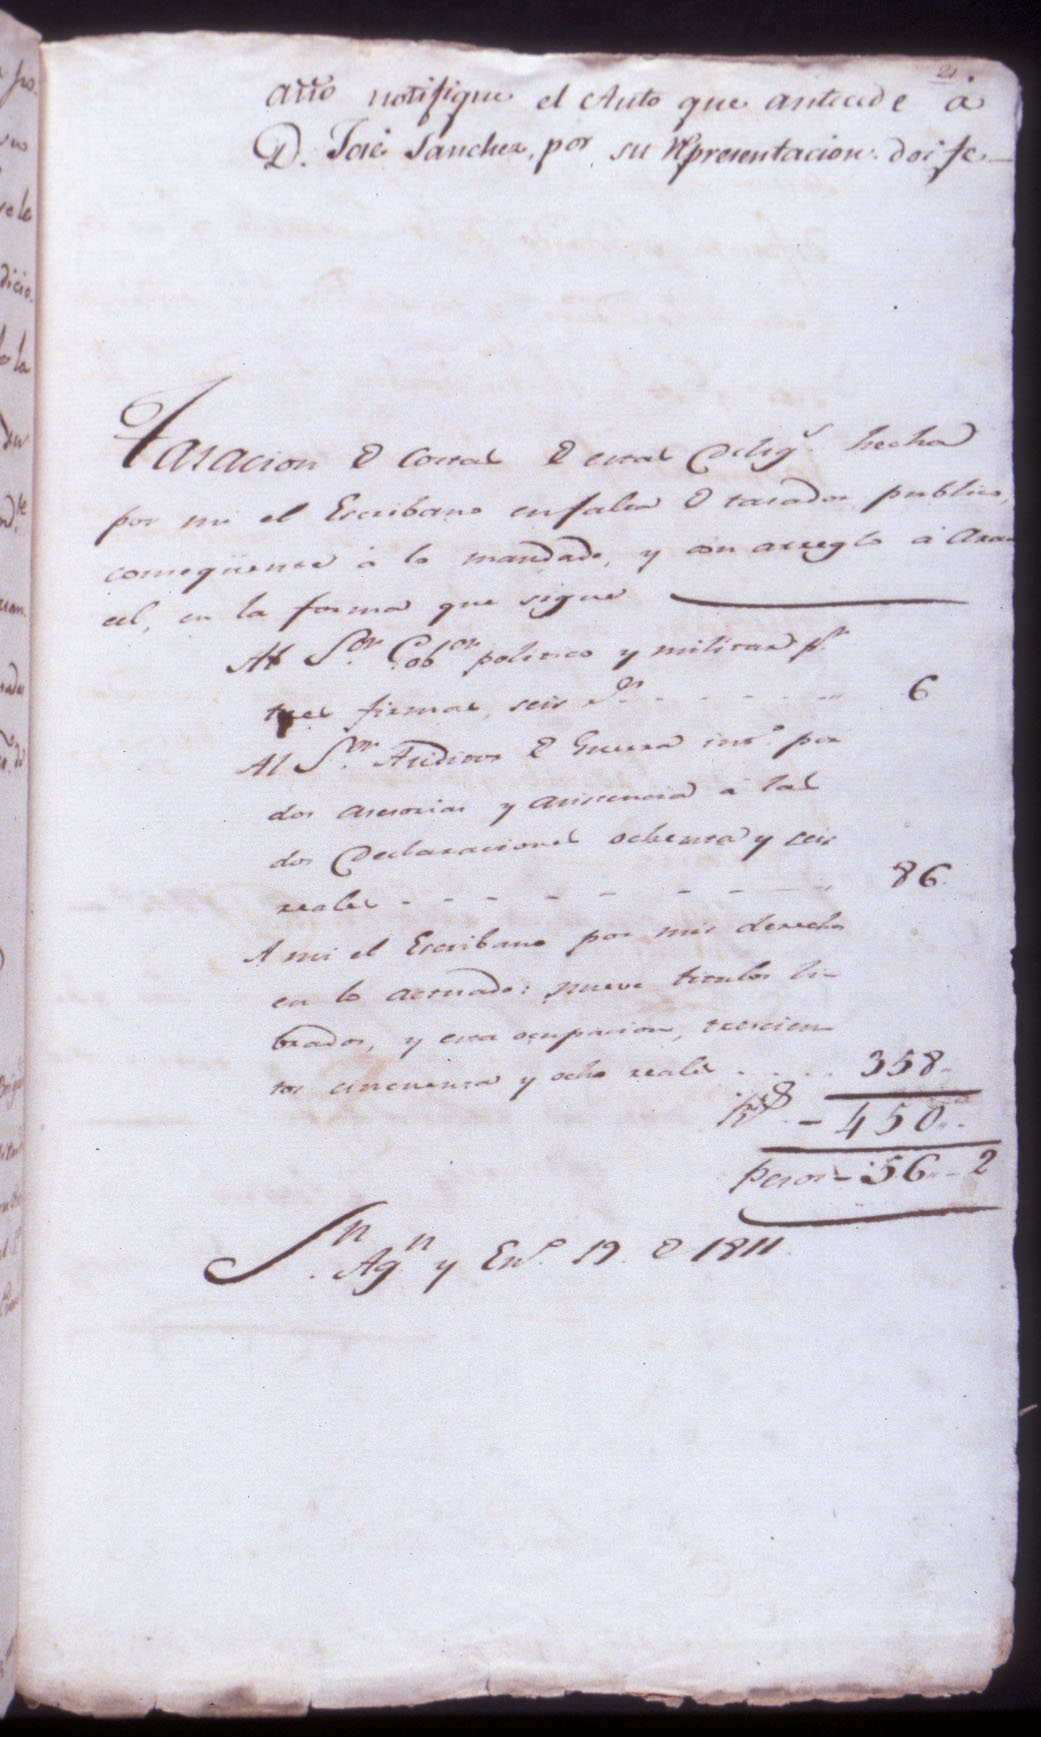 21.
año notifique el Auto que antecede á
D. José Sanchez, por su Rpresentacion. doi fe
Tasacion D costas D estas Dilig.s hecha
por mi el Escribano enfalta D tasador publico,
conseqüente á lo mandado, y con arreglo á Aran
cel, en la forma que sigue
Al S.or Gob.or politico y militar p.r
tres firmas, seis r.s 6
Al S.or Auditor D Guerra int.o por
dos asesorias y asistencia á las
dos Declaraciones ochenta y seis
reales 86
A mi el Escribano por mis derechos
en lo actuado: nueve
brados, y esta ocupacion, trescien
tos cincuenta y ocho reales 358
450
pesos 56 2
S.n Ag.n y En.o 19 D 1811